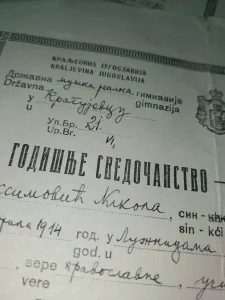 КРАЉЕВИНА ЈУГОСЛАВИЈА
KRALJEVINA JUGOSLAVIJA
Државна мушка реална гимназија
Državna gimnazija
у Крагујевцу
u
Уп.Бр. 21.
Up.Br. VI,
ГОДИШЊЕ СВЕДОЧАНСТВО
симовић Никола, син - кћи
sin - kći
1914 год. у Лужницама
god. u
, вере православне, уч
vere